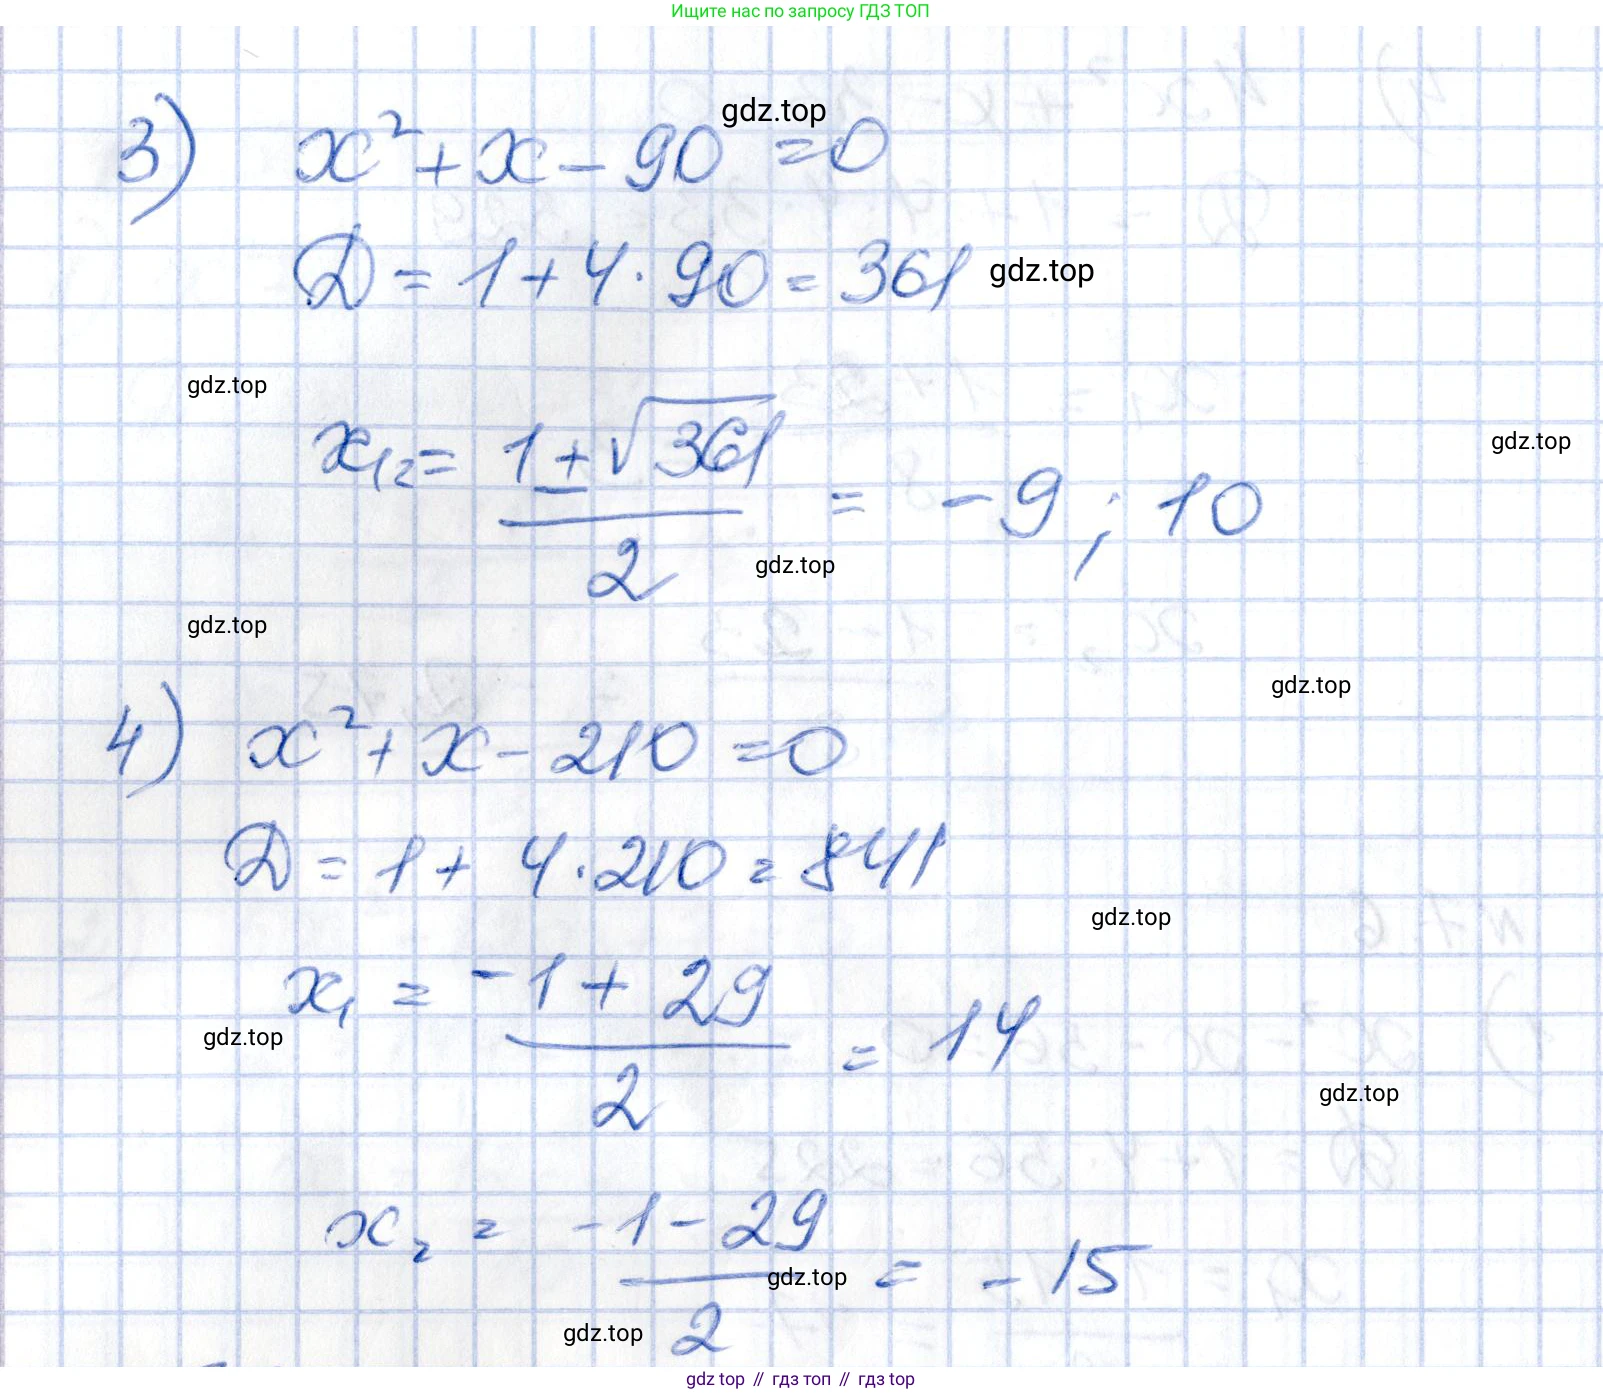 Ищите нас по запросу ГДЗ ТОП
gdz.top
3) x² + x - 90 = 0
D = 1 + 4 · 90 = 361 gdz.top
gdz.top
x₁₂ = (1 ± √361) / 2 = -9 ; 10
gdz.top
gdz.top
gdz.top
gdz.top
4) x² + x - 210 = 0
D = 1 + 4 · 210 = 841
gdz.top
x₁ = (-1 + 29) / 2 = 14
gdz.top
gdz.top
x₂ = (-1 - 29) / 2 = -15
gdz.top
gdz.top
gdz top // гдз топ // гдз top